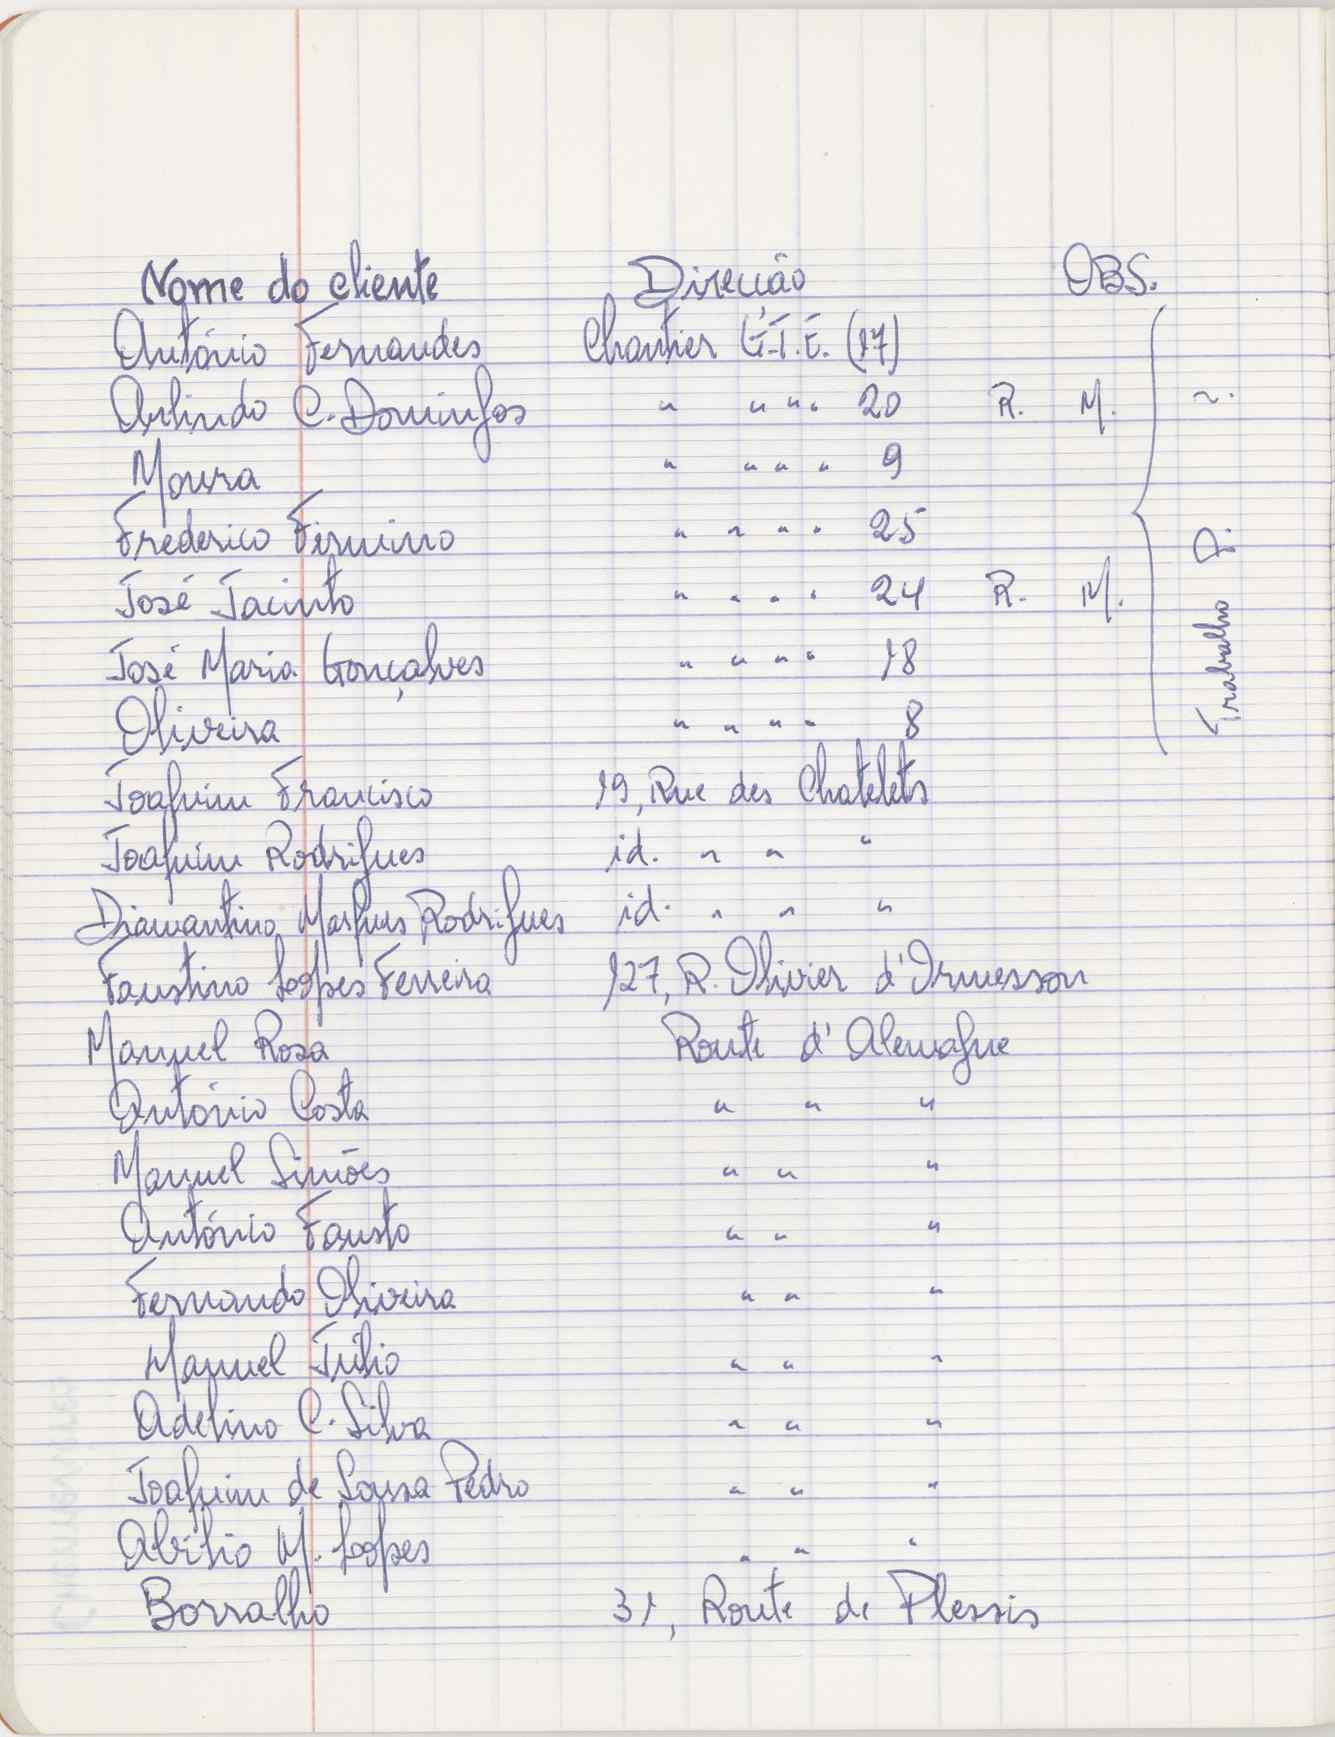 Nome do cliente Direcção OBS.
António Fernandes Chantier G.T.E. (17)
Arlindo C. Domingos " " " " 20 R. M.
Moura " " " " 9
Frederico Firmino " " " " 25
José Jacinto " " " " 24 R. M.
José Maria Gonçalves " " " " 18
Oliveira " " " " 8
Trabalho D.
Joaquim Francisco 19, Rue des Chatelets
Joaquim Rodrigues id. " " "
Diamantino Marques Rodrigues id. " " "
Faustino Lopes Ferreira 127, R. Olivier d'Ormesson
Manuel Rosa Route d'Alemagne
António Costa " " "
Manuel Simões " " "
António Fausto " " "
Fernando Oliveira " " "
Manuel Júlio " " "
Adelino C. Silva " " "
Joaquim de Sousa Pedro " " "
Abílio M. Lopes " " "
Borralho 31, Route de Plessis